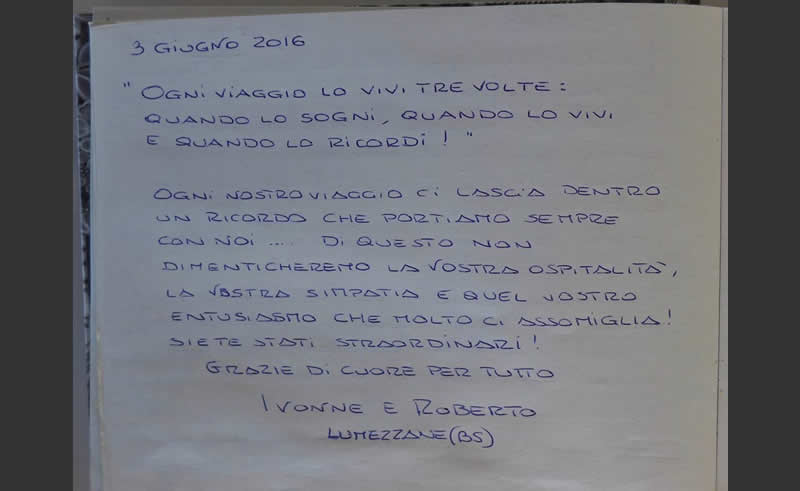 3 GIUGNO 2016
"OGNI VIAGGIO LO VIVI TRE VOLTE:
QUANDO LO SOGNI, QUANDO LO VIVI
E QUANDO LO RICORDI!"
OGNI NOSTRO VIAGGIO CI LASCIA DENTRO
UN RICORDO CHE PORTIAMO SEMPRE
CON NOI .... DI QUESTO NON
DIMENTICHEREMO LA VOSTRA OSPITALITÀ,
LA VOSTRA SIMPATIA E QUEL VOSTRO
ENTUSIASMO CHE MOLTO CI ASSOMIGLIA!
SIETE STATI STRAORDINARI!
GRAZIE DI CUORE PER TUTTO
IVONNE E ROBERTO
LUMEZZANE (BS)